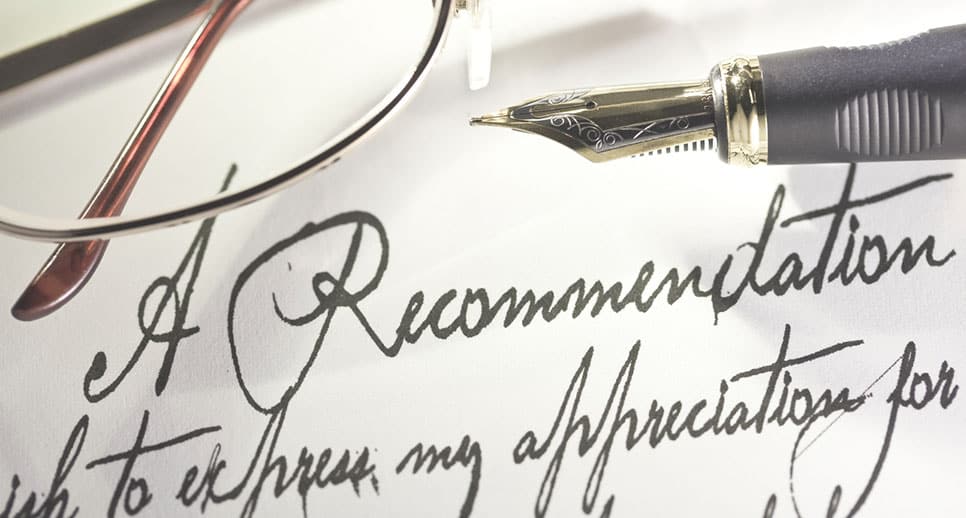 A Recommendation
ish to express my appreciation for